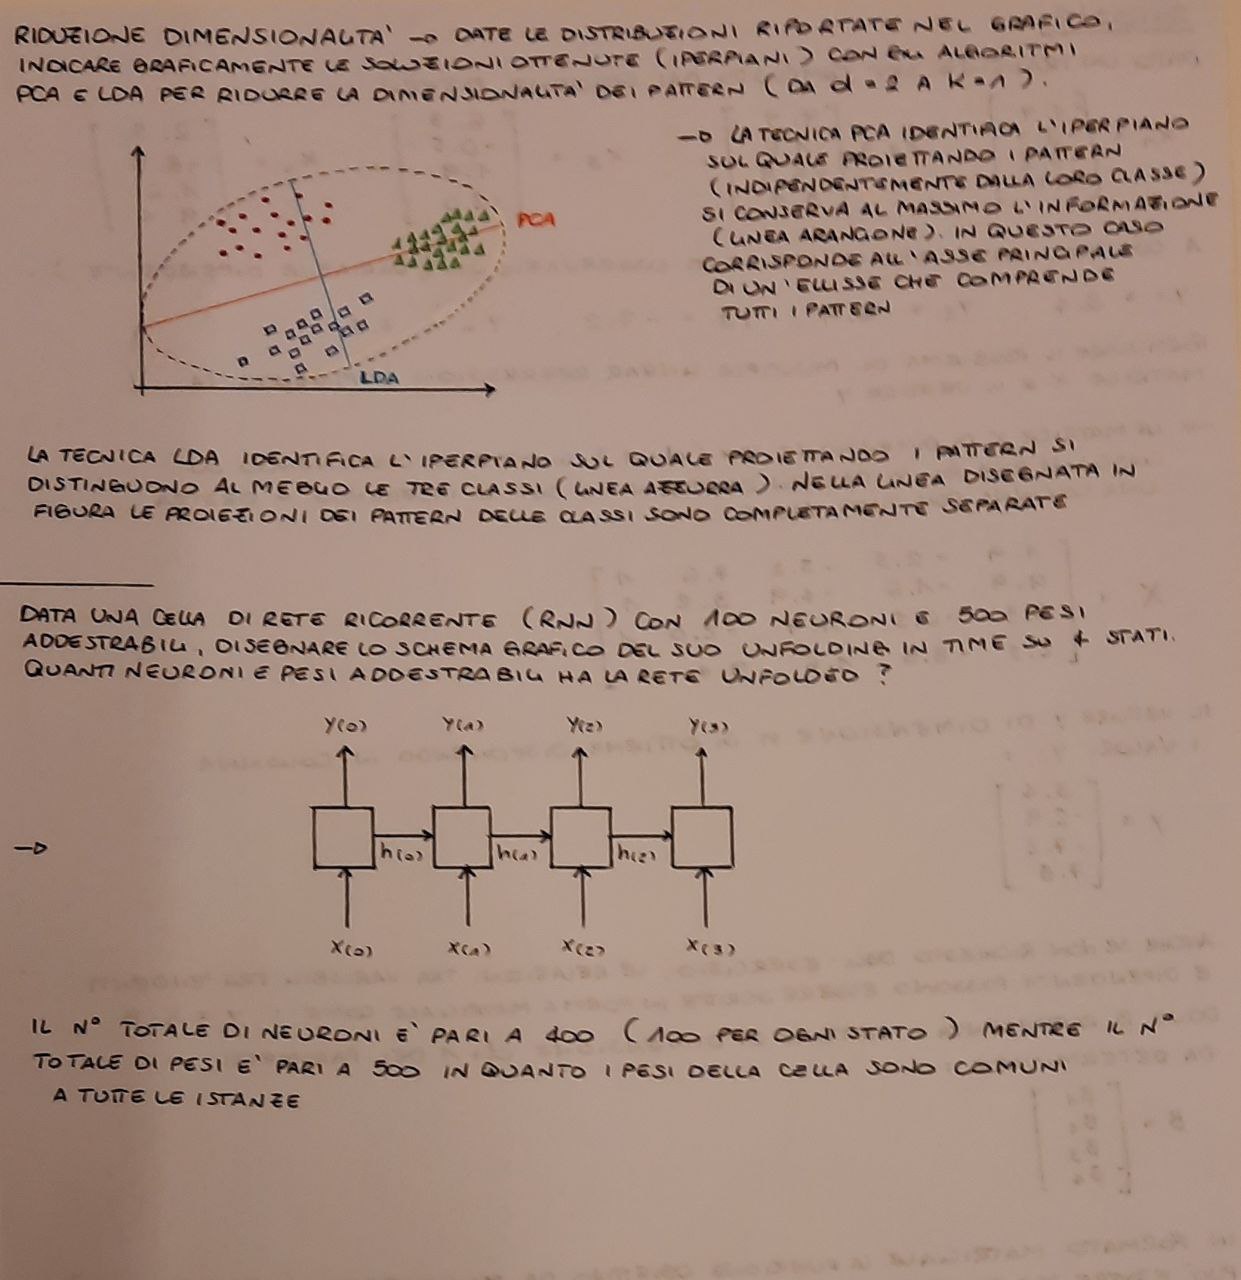 RIDUZIONE DIMENSIONALITA' → DATE LE DISTRIBUZIONI RIPORTATE NEL GRAFICO,
INDICARE GRAFICAMENTE LE SOLUZIONI OTTENUTE (IPERPIANI) CON GLI ALGORITMI
PCA E LDA PER RIDURRE LA DIMENSIONALITA' DEI PATTERN (DA d = 2 A K = 1).
→ LA TECNICA PCA IDENTIFICA L'IPERPIANO
SUL QUALE PROIETTANDO I PATTERN
(INDIPENDENTEMENTE DALLA LORO CLASSE)
SI CONSERVA AL MASSIMO L'INFORMAZIONE
(LINEA ARANCIONE). IN QUESTO CASO
CORRISPONDE ALL'ASSE PRINCIPALE
DI UN'ELLISSE CHE COMPRENDE
TUTTI I PATTERN
PCA
LDA
LA TECNICA LDA IDENTIFICA L'IPERPIANO SUL QUALE PROIETTANDO I PATTERN SI
DISTINGUONO AL MEGLIO LE TRE CLASSI (LINEA AZZURRA). NELLA LINEA DISEGNATA IN
FIGURA LE PROIEZIONI DEI PATTERN DELLE CLASSI SONO COMPLETAMENTE SEPARATE
DATA UNA CELLA DI RETE RICORRENTE (RNN) CON 100 NEURONI E 500 PESI
ADDESTRABILI, DISEGNARE LO SCHEMA GRAFICO DEL SUO UNFOLDING IN TIME SU 4 STATI.
QUANTI NEURONI E PESI ADDESTRABILI HA LA RETE UNFOLDED ?
Y(0) Y(1) Y(2) Y(3)
→
h(0) h(1) h(2)
X(0) X(1) X(2) X(3)
IL N° TOTALE DI NEURONI E' PARI A 400 (100 PER OGNI STATO) MENTRE IL N°
TOTALE DI PESI E' PARI A 500 IN QUANTO I PESI DELLA CELLA SONO COMUNI
A TUTTE LE ISTANZE